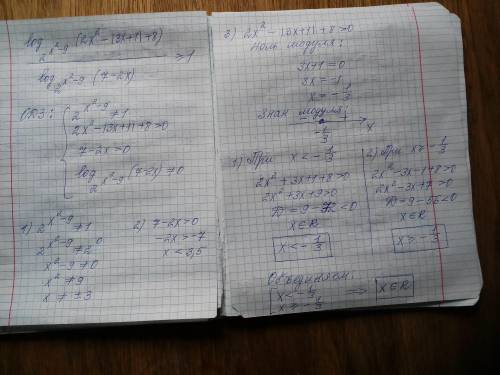 log_{2^{x²-9}} (2x² - |3x+1| + 8)
>1
log_{2^{x²-9}} (7-2x)
ОДЗ:
2^{x²-9} ≠ 1
2x² - |3x+1| + 8 > 0
7-2x > 0
log_{2^{x²-9}} (7-2x) ≠ 0
1) 2^{x²-9} ≠ 1
2^{x²-9} ≠ 2^0
x² - 9 ≠ 0
x² ≠ 9
x ≠ ±3
2) 7-2x > 0
-2x > -7
x < 3,5
3) 2x² - |3x+1| + 8 > 0
Ноль модуля:
3x+1 = 0
3x = -1
x = -1/3
Знак модуля:
- + x
-1/3
1) При x < -1/3
2x² + 3x+1+8 > 0
2x² + 3x+9 > 0
D = 9-72 < 0
x∈R
x < -1/3
2) При x ≥ -1/3
2x² - 3x - 1 + 8 > 0
2x² - 3x + 7 > 0
D = 9-56 < 0
x∈R
x ≥ -1/3
Объединяем:
x < -1/3
x ≥ -1/3 ⟹ x∈R